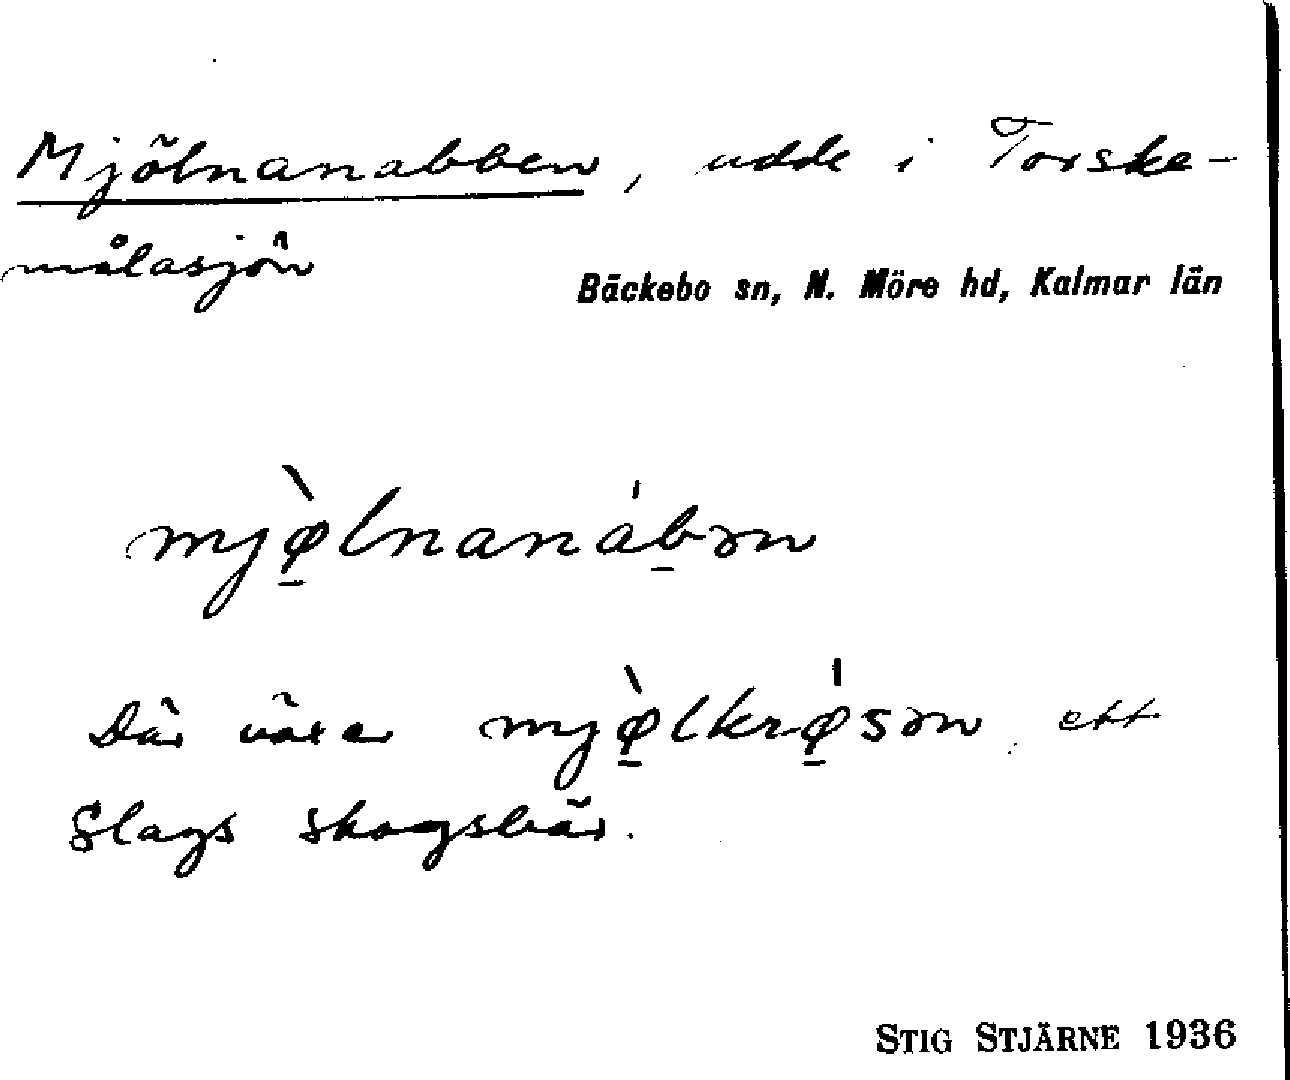 Mjölnanabben, udde i Torske-
målasjön
Bäckebo sn, N. Möre hd, Kalmar län
mjø̱̀lnanáḇən
Där växer mjø̱̀lkrǿ̱sən ett
Slags skogsbär.
STIG STJÄRNE 1936